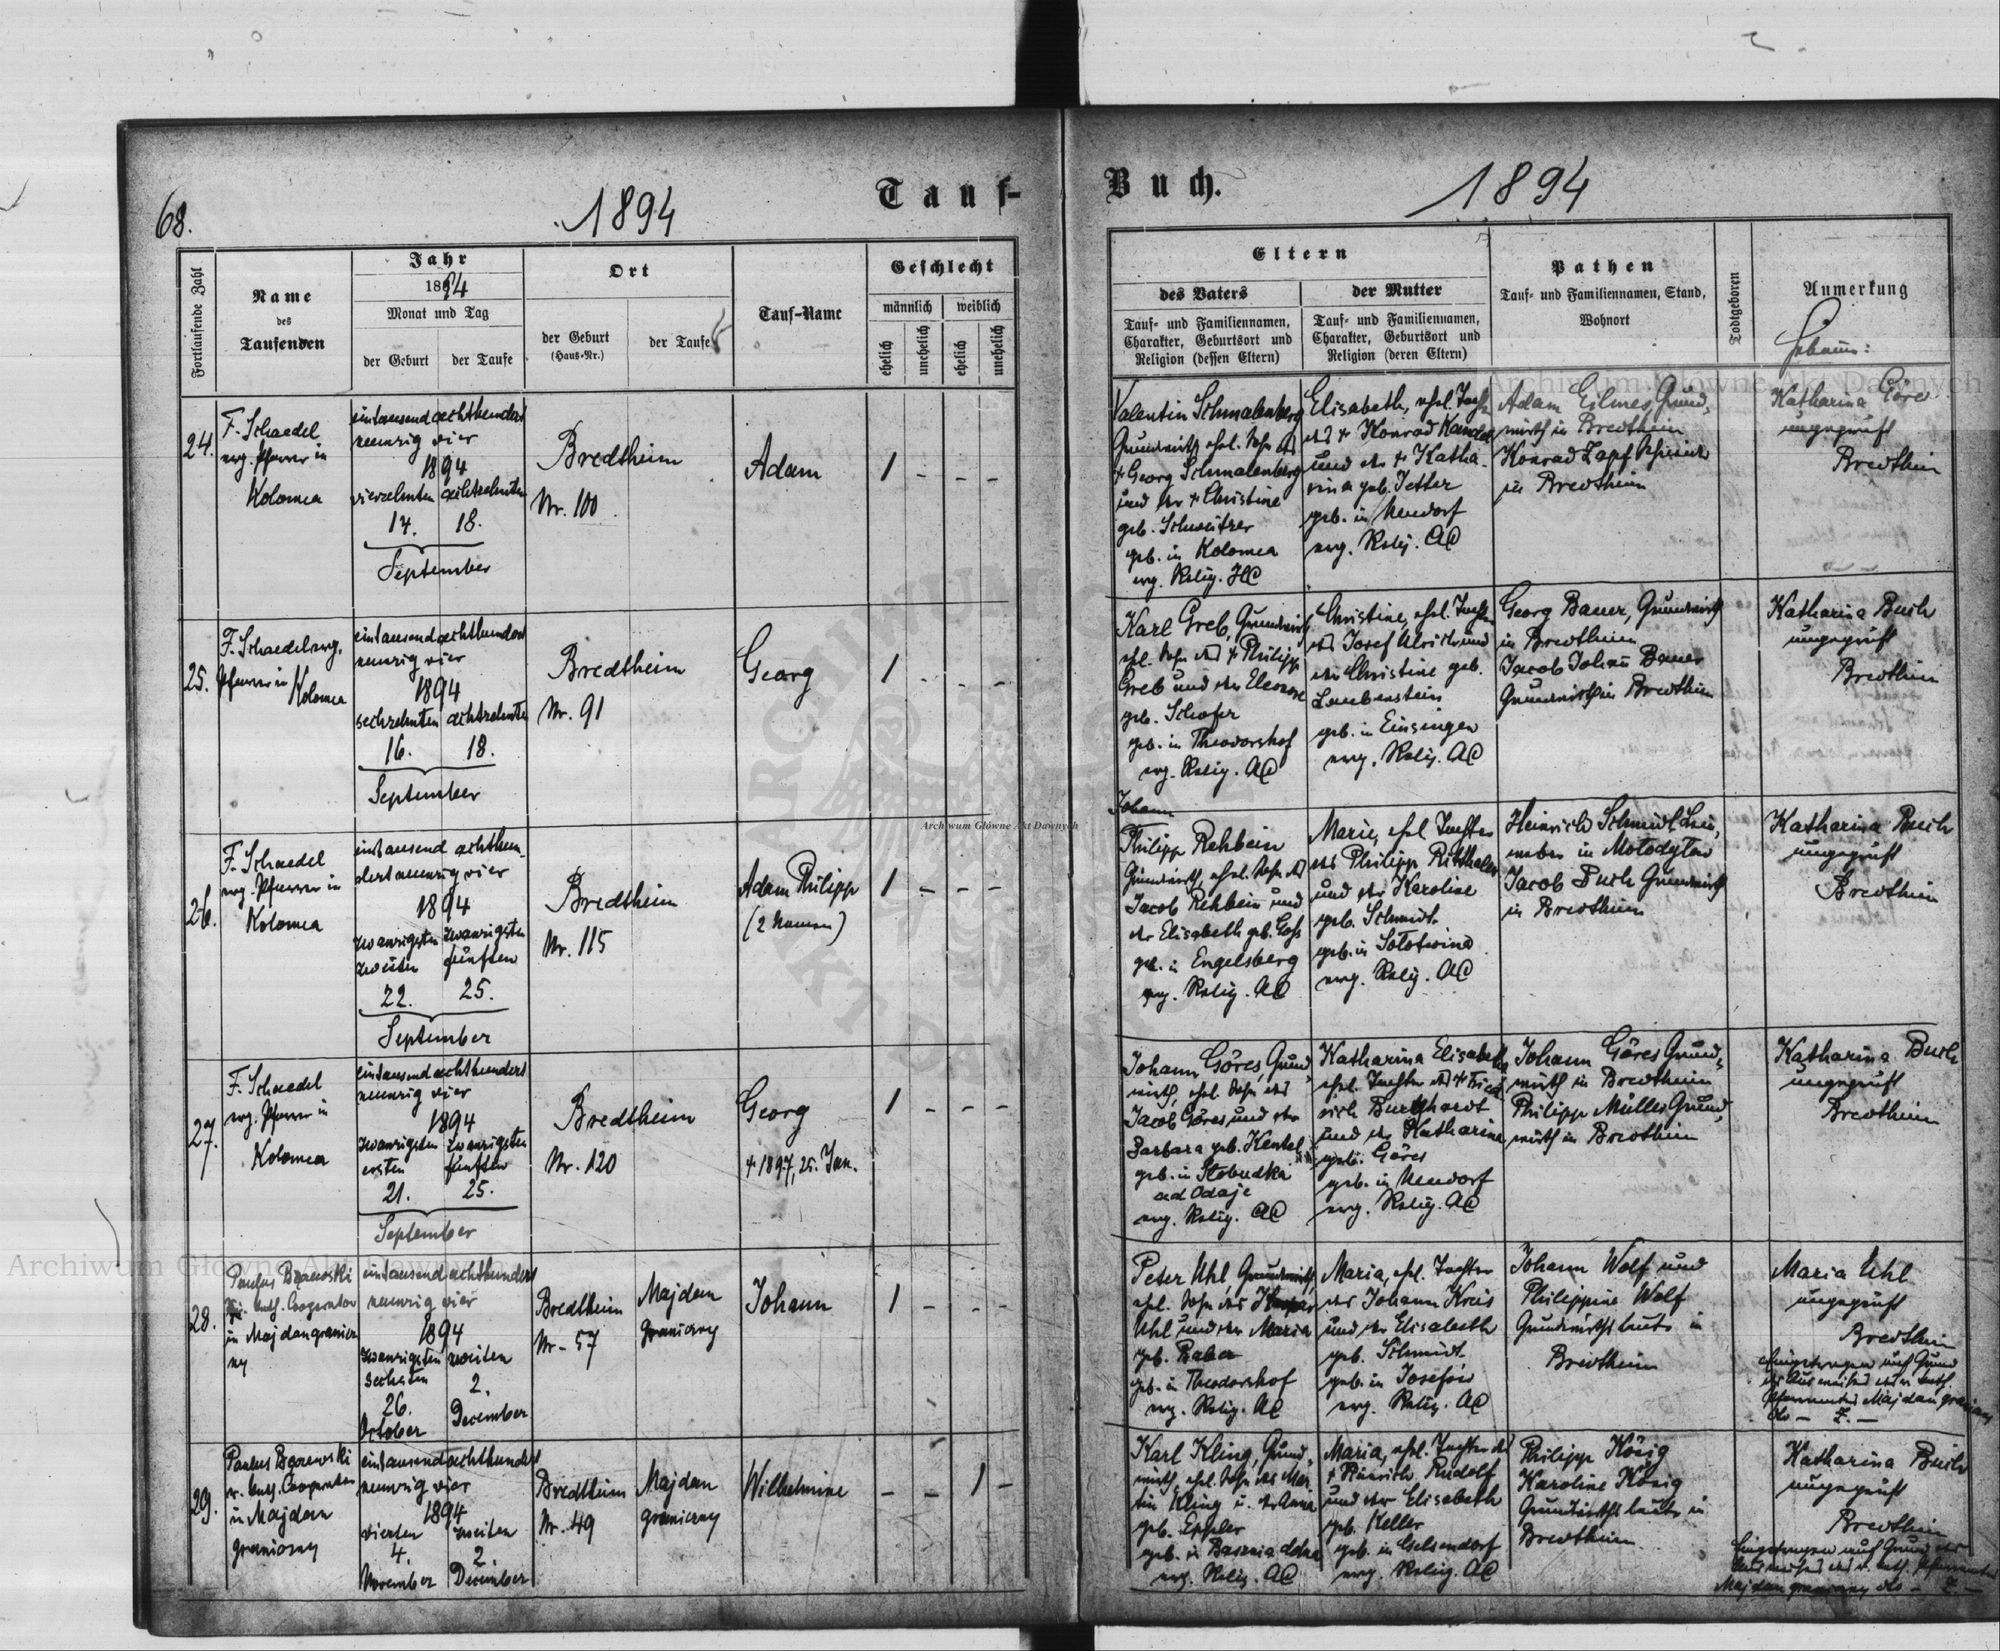 68.
1894
Tauf-
Buch.
1894
Fortlaufende Zahl
Name
des
Taufenden
Jahr
1894
Monat und Tag
der Geburt
der Taufe
Ort
der Geburt
(Haus-Nr.)
der Taufe
Tauf-Name
Geschlecht
männlich
weiblich
ehelich
unehelich
ehelich
unehelich
Eltern
des Vaters
Tauf- und Familiennamen,
Charakter, Geburtsort und
Religion (dessen Eltern)
der Mutter
Tauf- und Familiennamen,
Charakter, Geburtsort und
Religion (deren Eltern)
Pathen
Tauf- und Familiennamen, Stand,
Wohnort
Todtgeboren
Anmerkung
24.
F. Schaedel
evg. Pfarrer in
Kolomea
eintausend achthundert
neunzig vier
1894
vierzehnten achtzehnten
14. 18.
September
Bredtheim
Nr. 100
Adam
1 - - -
Valentin Schmalenberg
Grundwirth, ehel. Sohn des
+ Georg Schmalenberg
und der + Christine
geb. Schweitzer
geb. in Kolomea
evg. Relig. HC
Elisabeth, ehel. Tocht.
des + Konrad Kandel
und der + Katha-
rina geb. Jetter
geb. in Neudorf
evg. Relig. AC
Adam Eilmes, Grund-
wirth in Bredtheim
Konrad Zapf
in Bredtheim
Katharina
ungeprüft
Bredtheim
25.
F. Schaedel evg.
Pfarrer in
Kolomea
eintausend achthundert
neunzig vier
1894
sechzehnten achtzehnten
16. 18.
September
Bredtheim
Nr. 91
Georg
1 - - -
Karl Greb, Grundwirth
ehl. Sohn des + Philipp
Greb und der Eleonore
geb. Schofer
geb. in Theodorshof
evg. Relig. AC
Christine, ehel. Tochter
des Josef Ulrich und
der Christine geb.
Laubenstein
geb. in Einsingen
evg. Relig. AC
Georg Bauer, Grundwirth
in Bredtheim
Jacob Johan̄ Bauer
Grundwirth in Bredtheim
Katharina Buch
ungeprüft
Bredtheim
26.
F. Schaedel
evg. Pfarrer in
Kolomea
eintausend achthun-
dert neunzig vier
1894
zwanzigsten zwanzigsten
zweiten fünften
22. 25.
September
Bredtheim
Nr. 115
Adam Philipp
(2 Namen)
1 - - -
Johann
Philipp Rehbein
Grundwirth, ehel. Sohn des
Jacob Rehbein und
der Elisabeth geb. Goss
geb. in Engelsberg
evg. Relig. AC
Marie, ehel. Tochter
des Philipp Ritthaler
und der Karoline
geb. Schmidt
geb. in Sołotwina
evg. Relig. AC
Heinrich Schmidt
in Mołodyłow
Jacob Buch Grundwirth
in Bredtheim
Katharina Buch
ungeprüft
Bredtheim
27.
F. Schaedel
evg. Pfarrer in
Kolomea
eintausend achthundert
neunzig vier
1894
zwanzigsten zwanzigsten
ersten fünften
21. 25.
September
Bredtheim
Nr. 120
Georg
+ 1897, 25. Jan.
1 - - -
Johann Göres, Grund-
wirth, ehel. Sohn des
Jacob Göres und der
Barbara geb. Kentel
geb. in Słobudka
ad Odaje
evg. Relig. AC
Katharina Elisabeth
ehel. Tochter des + Fried-
rich Burghardt
und der Katharina
geb. Göres
geb. in Neudorf
evg. Relig. AC
Johann Göres Grund-
wirth in Bredtheim
Philipp Müller Grund-
wirth in Bredtheim
Katharina Buch
ungeprüft
Bredtheim
28.
Paulus
Cooperator
in Majdan granicz
ny
eintausend achthundert
neunzig vier
1894
zwanzigsten zweiten
sechsten 2.
26. December
October
Bredtheim
Nr. 57
Majdan
graniczny
Johann
1 - - -
Peter Uhl, Grundwirth,
ehl. Sohn des
Uhl und der Maria
geb. Baber
geb. in Theodorshof
evg. Relig. AC
Maria, ehl. Tochter
des Johann Kreis
und der Elisabeth
geb. Schmidt
geb. in Josefów
evg. Relig. AC
Johann Wolf und
Philippine Wolf
Grundwirthsleute in
Bredtheim
Maria Uhl
ungeprüft
Bredtheim
Eingetragen auf Grund
des Ausweises des r. kath.
Pfarramtes Majdan graniczny
29.
Paulus
r. kath. Cooperator
in Majdan
graniczny
eintausend achthundert
neunzig vier
1894
vierten zweiten
4. 2.
November December
Bredtheim
Nr. 49
Majdan
graniczny
Wilhelmine
- - 1 -
Karl Kling, Grund-
wirth, ehel. Sohn des Mar-
tin Kling u. der Anna
geb. Eppler
geb. in
evg. Relig. AC
Maria, ehel. Tochter des
+ Heinrich Rudolf
und der Elisabeth
geb. Keller
geb. in Gelsendorf
evg. Relig. AC
Philipp König
Karoline König
Grundwirthsleute in
Bredtheim
Katharina Buch
ungeprüft
Bredtheim
Eingetragen auf Grund des
Ausweises des r. kath. Pfarramtes
Majdan graniczny
Archiwum Główne Akt Dawnych
Archiwum Główne Akt Dawnych
Archiwum Główne Akt Dawnych